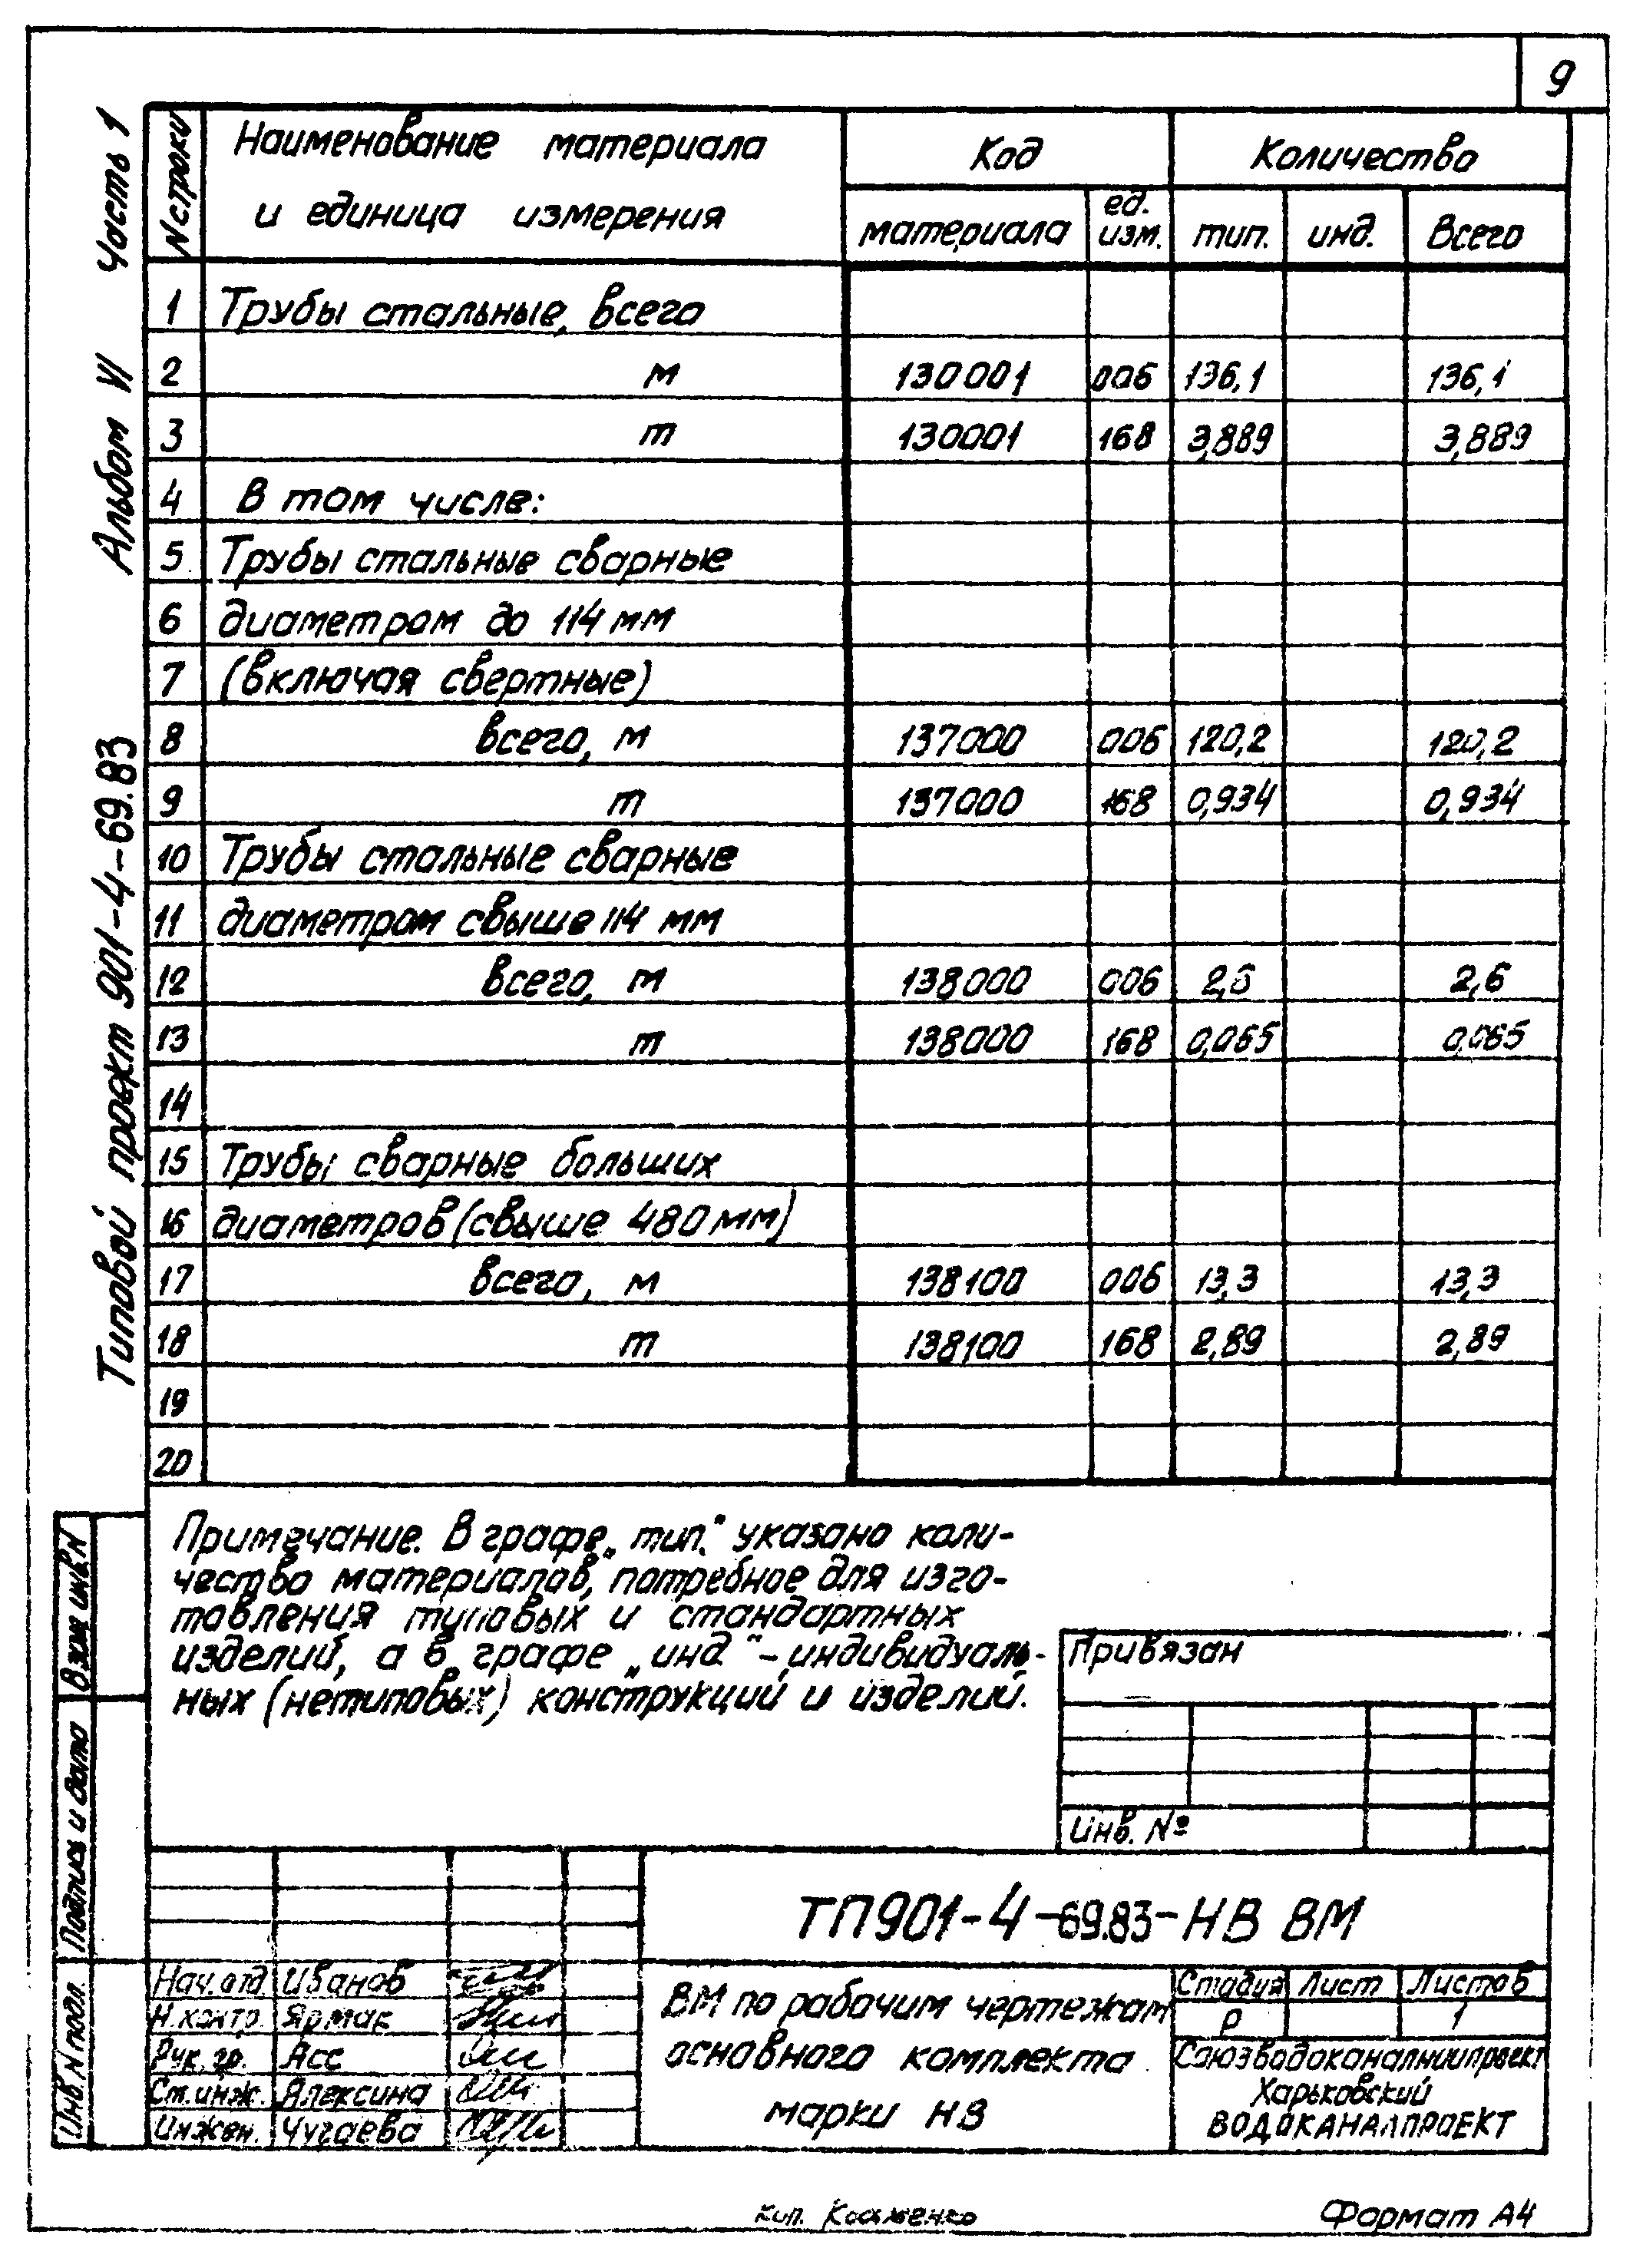 9
Типовой проект 901-4-69.83 Альбом VI Часть 1
N строки Наименование материала и единица измерения Код Количество
материала ед. изм. тип. инд. Всего
1 Трубы стальные, всего
2 м 130001 006 136,1 136,1
3 т 130001 168 3,889 3,889
4 В том числе:
5 Трубы стальные сварные
6 диаметром до 114 мм
7 (включая свертные)
8 всего, м 137000 006 120,2 120,2
9 т 137000 168 0,934 0,934
10 Трубы стальные сварные
11 диаметром свыше 114 мм
12 всего, м 138000 006 2,6 2,6
13 т 138000 168 0,065 0,065
14
15 Трубы сварные больших
16 диаметров (свыше 480 мм)
17 всего, м 138100 006 13,3 13,3
18 т 138100 168 2,89 2,89
19
20
Примечание. В графе „тип.“ указано коли-
чество материалов, потребное для изго-
товления типовых и стандартных
изделий, а в графе „инд“ – индивидуаль-
ных (нетиповых) конструкций и изделий.
Привязан
Инв. №
Взам. инв. N
Подпись и дата
Инв. N подл.
ТП901-4-69.83-НВ ВМ
Нач. отд Иванов
Н. контр. Ярмак
Рук. гр. Асс
Ст. инж. Алексина
Инжен. Чугаева
ВМ по рабочим чертежам
основного комплекта
марки НВ
Стадия Лист Листов
Р 1
Союзводоканалниипроект
Харьковский
ВОДОКАНАЛПРОЕКТ
Формат А4